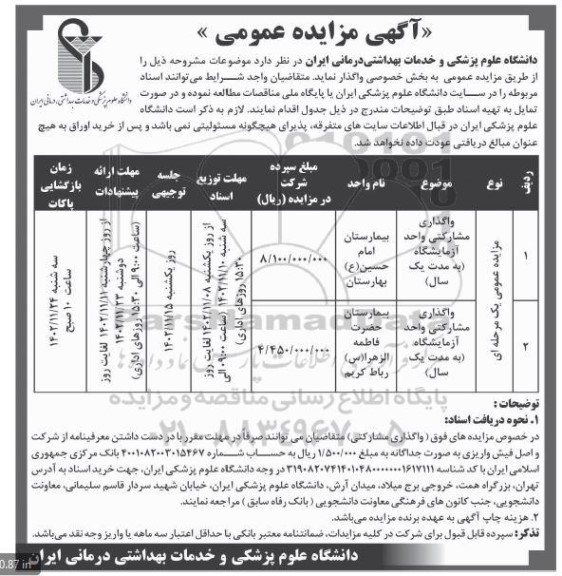 «آگهی مزایده عمومی»
دانشگاه علوم پزشکی و خدمات بهداشتی درمانی ایران
دانشگاه علوم پزشکی و خدمات بهداشتی‌درمانی ایران در نظر دارد موضوعات مشروحه ذیل را
از طریق مزایده عمومی به بخش خصوصی واگذار نماید. متقاضیان واجد شرایط می‌توانند اسناد
مربوطه را در سایت دانشگاه علوم پزشکی ایران یا پایگاه ملی مناقصات مطالعه نموده و در صورت
تمایل به تهیه اسناد طبق توضیحات مندرج در ذیل جدول اقدام نمایند. لازم به ذکر است دانشگاه
علوم پزشکی ایران در قبال اطلاعات سایت های متفرقه، پذیرای هیچگونه مسئولیتی نمی باشد و پس از خرید اوراق به هیچ
عنوان مبالغ دریافتی عودت داده نخواهد شد.
ردیف
نوع
موضوع
نام واحد
مبلغ سپرده شرکت در مزایده (ریال)
مهلت توزیع اسناد
جلسه توجیهی
مهلت ارائه پیشنهادات
زمان بازگشایی پاکات
۱
مزایده عمومی یک مرحله ای
واگذاری مشارکتی واحد آزمایشگاه (به مدت یک سال)
بیمارستان امام حسین(ع) بهارستان
۸/۱۰۰/۰۰۰/۰۰۰
از روز یکشنبه ۱۴۰۲/۱۱/۰۸ لغایت روز
سه شنبه ۱۴۰۲/۱۱/۱۰ (ساعت ۰۹:۰۰ الی
۱۵:۳۰ روزهای اداری)
روز یکشنبه ۱۴۰۲/۱۱/۱۵
از روز چهارشنبه ۱۴۰۲/۱۱/۱۱ لغایت روز
دوشنبه ۱۴۰۲/۱۱/۲۳
(ساعت ۹:۰۰ الی ۱۵:۳۰ روزهای اداری)
سه شنبه ۱۴۰۲/۱۱/۲۴
ساعت ۱۰ صبح
۲
واگذاری مشارکتی واحد آزمایشگاه (به مدت یک سال)
بیمارستان حضرت فاطمه الزهرا(س) رباط کریم
۴/۴۵۰/۰۰۰/۰۰۰
پایگاه اطلاع رسانی مناقصه و مزایده
۰۲۱-۸۸۳۴۹۶۷۰-۵
توضیحات :
۱. نحوه دریافت اسناد:
در خصوص مزایده های فوق (واگذاری مشارکتی) متقاضیان می توانند صرفاً در مهلت مقرر با در دست داشتن معرفینامه از شرکت
و اصل فیش واریزی به صورت جداگانه به مبلغ ۱/۵۰۰/۰۰۰ ریال به حساب شماره ۴۰۰۱۰۸۲۰۰۳۰۱۵۴۶۷ بانک مرکزی جمهوری
اسلامی ایران با کد شناسه ۳۱۹۰۸۲۰۷۴۱۴۰۱۰۴۸۰۰۰۰۰۰۰۱۶۱۷۱۱۱ در وجه دانشگاه علوم پزشکی ایران، جهت خرید اسناد به آدرس
تهران، بزرگراه همت، خروجی برج میلاد، میدان آرش، دانشگاه علوم پزشکی ایران، خیابان شهید سردار قاسم سلیمانی، معاونت
دانشجویی، جنب کانون های فرهنگی معاونت دانشجویی (بانک رفاه سابق) مراجعه نمایند.
۲. هزینه چاپ آگهی به عهده برنده مزایده می‌باشد.
تذکر: سپرده قابل قبول برای شرکت در کلیه مزایدات، ضمانتنامه معتبر بانکی با حداقل اعتبار سه ماهه یا واریز وجه نقد می‌باشد.
دانشگاه علوم پزشکی و خدمات بهداشتی درمانی ایران
0.87 in